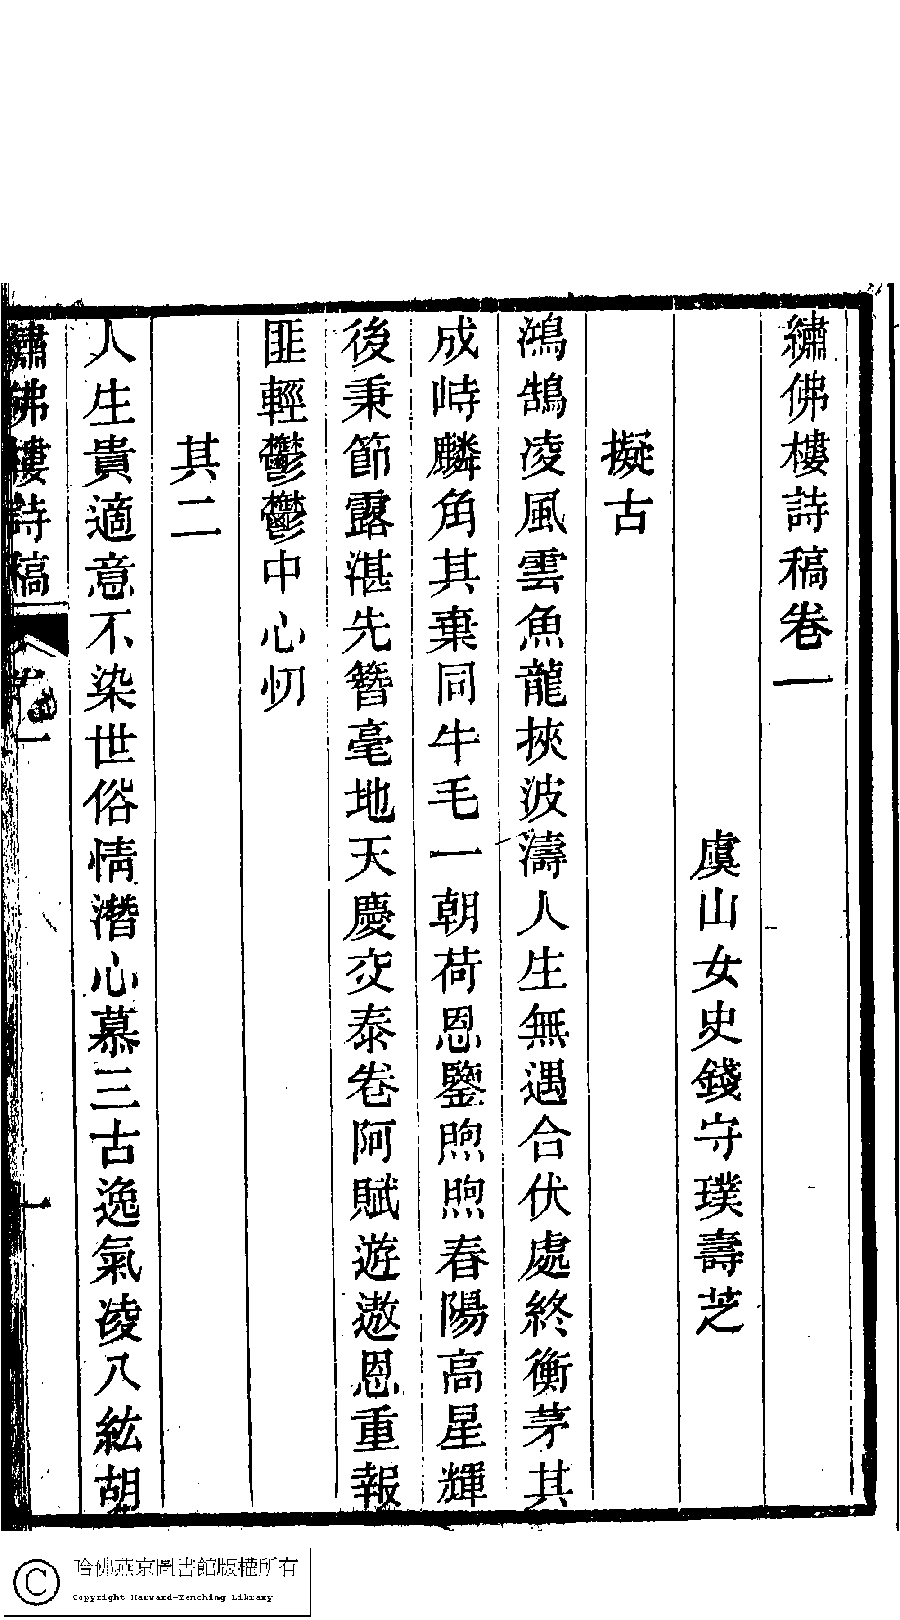 繡佛樓詩稿卷一
虞山女史錢守璞壽芝
擬古
鴻鵠凌風雲魚龍挾波濤人生無遇合伏處終衡茅其
成峙麟角其棄同牛毛一朝荷恩鑒煦煦春陽高星輝
後秉節露湛先簪毫地天慶交泰卷阿賦遊遨恩重報
匪輕鬱鬱中心忉
其二
人生貴適意不染世俗情潛心慕三古逸氣凌八紘胡
繡佛樓詩稿
卷一
一
哈佛燕京圖書館版權所有
Copyright Harvard-Yenching Library